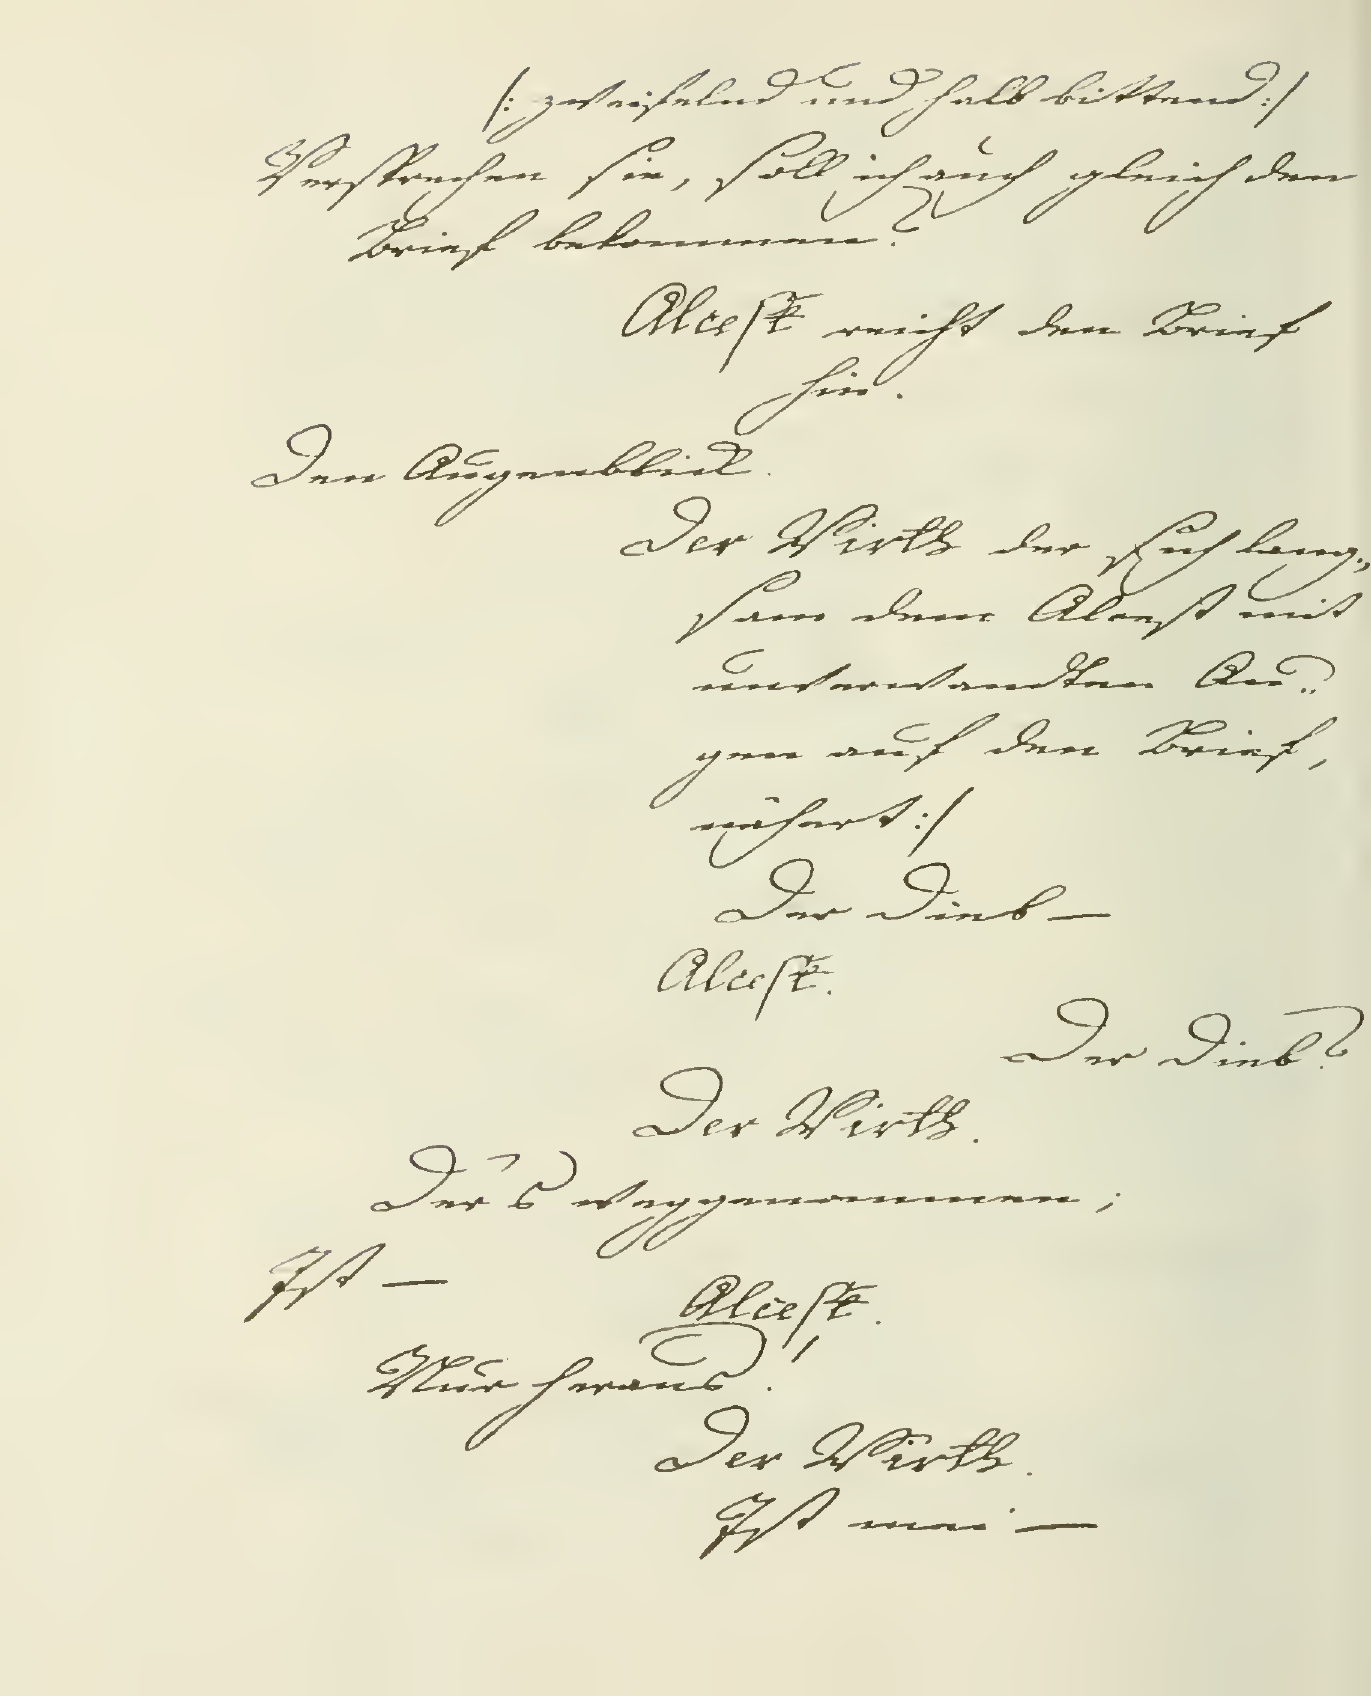 /: zweifelnd und halb bittend :/
Versprechen sie, soll ich auch gleich den
Brief bekommen?
Alcest reicht den Brief
hin.
Den Augenblick.
Der Wirth der sich lang„
sam dem Alcest mit
unverwandten Au„
gen auf den Brief,
nähert :/
Der Dieb —
Alcest.
Der Dieb?
Der Wirth.
Der's weggenommen;
Ist —
Alcest.
Nur heraus!
Der Wirth.
Ist mei —